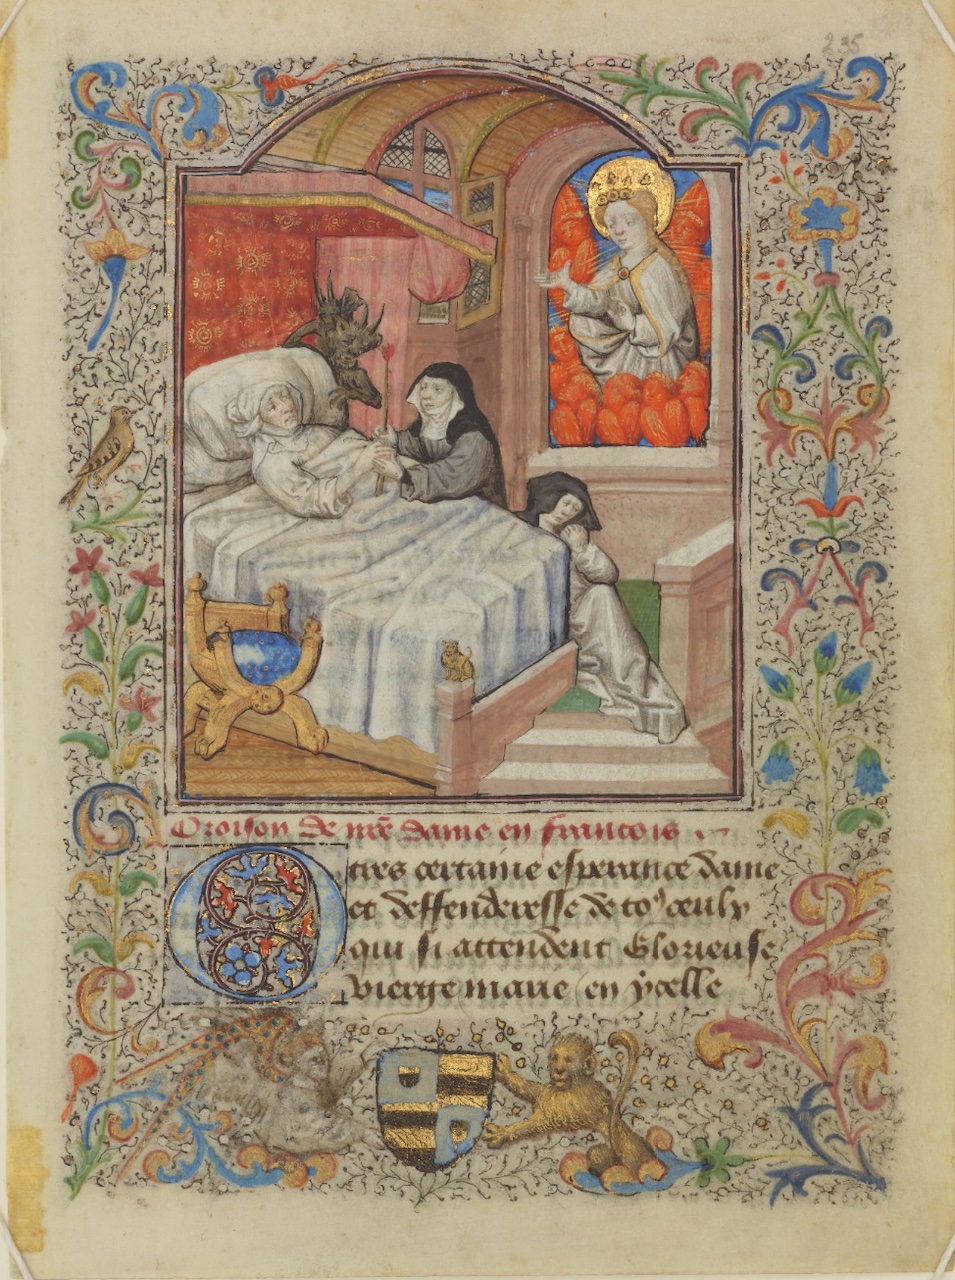 235
Oroison de nr̃e dame en francois
O tres certaine esperance dame
et deffenderesse de toꝰ ceulx
qui si attendent Glorieuse
vierge marie en ycelle